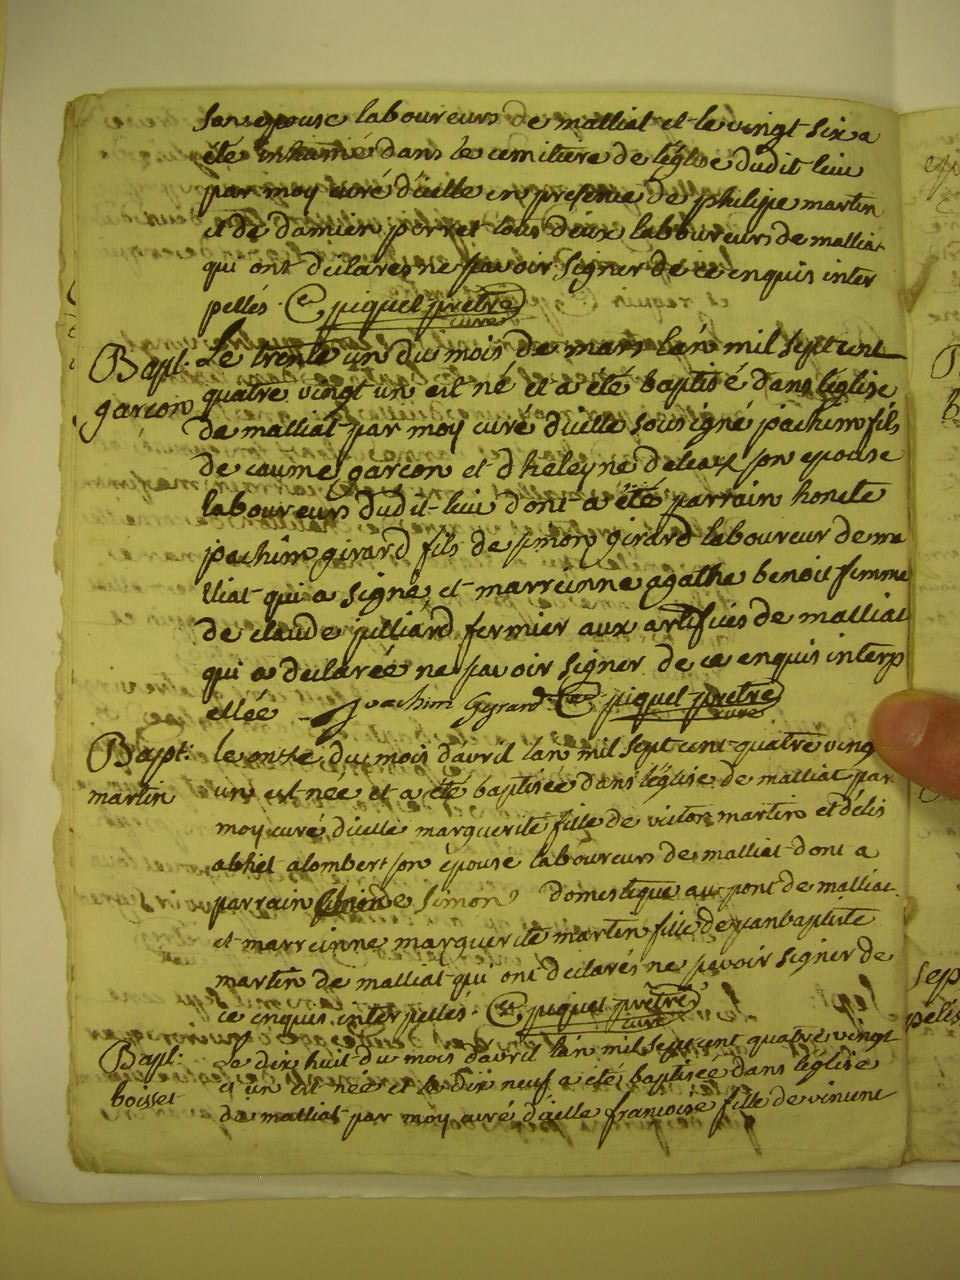 son epouse laboureurs de malliat et le vingt six a
été inhumé dans le cemitiere de léglise dudit lieu
par moy curé d'icelle en presence de philipe martin
et de damien perret tous deux laboureurs de malliat
qui ont declares ne savoir signer de ce enquis inter
pellés. piquet prêtre
curé
Bapt: Le trente un du mois de mars lan mil sept cent
garcon quatre vingt un est né et a été baptisé dans léglise
de malliat par moy curé d'icelle sousigné joachim fils
de caume garcon et d'heleyne deleaz son epouse
laboureurs dudit lieu dont a été parrain honete
joachim girard fils de simon girard laboureur de ma
lliat qui a signé et marreinne agathe benoit femme
de claude juilliard fermier aux artifices de malliat
qui a declarée ne savoir signer de ce enquis interp
ellée Joachim Gyrard piquet prêtre
curé
Bapt: le onze du mois d'avril lan mil sept cent quatre vingt
martin un est née et a été baptisée dans léglise de malliat par
moy curé d'icelle marguerite fille de victor martin et délis
abhet alombert son épouse laboureurs de malliat dont a
parrain Simon domestique au pont de malliat
et marreinne marguerite martin fille de jeanbaptiste
martin de malliat qui ont declarés ne savoir signer de
ce enquis interpellés. piquet prêtre
curé
Bapt: Le dix huit du mois d'avril lan mil sept cent quatre vingt
boisset et un est née et le dix neuf a été baptisée dans léglise
de malliat par moy curé d'icelle francoise fille de vincent